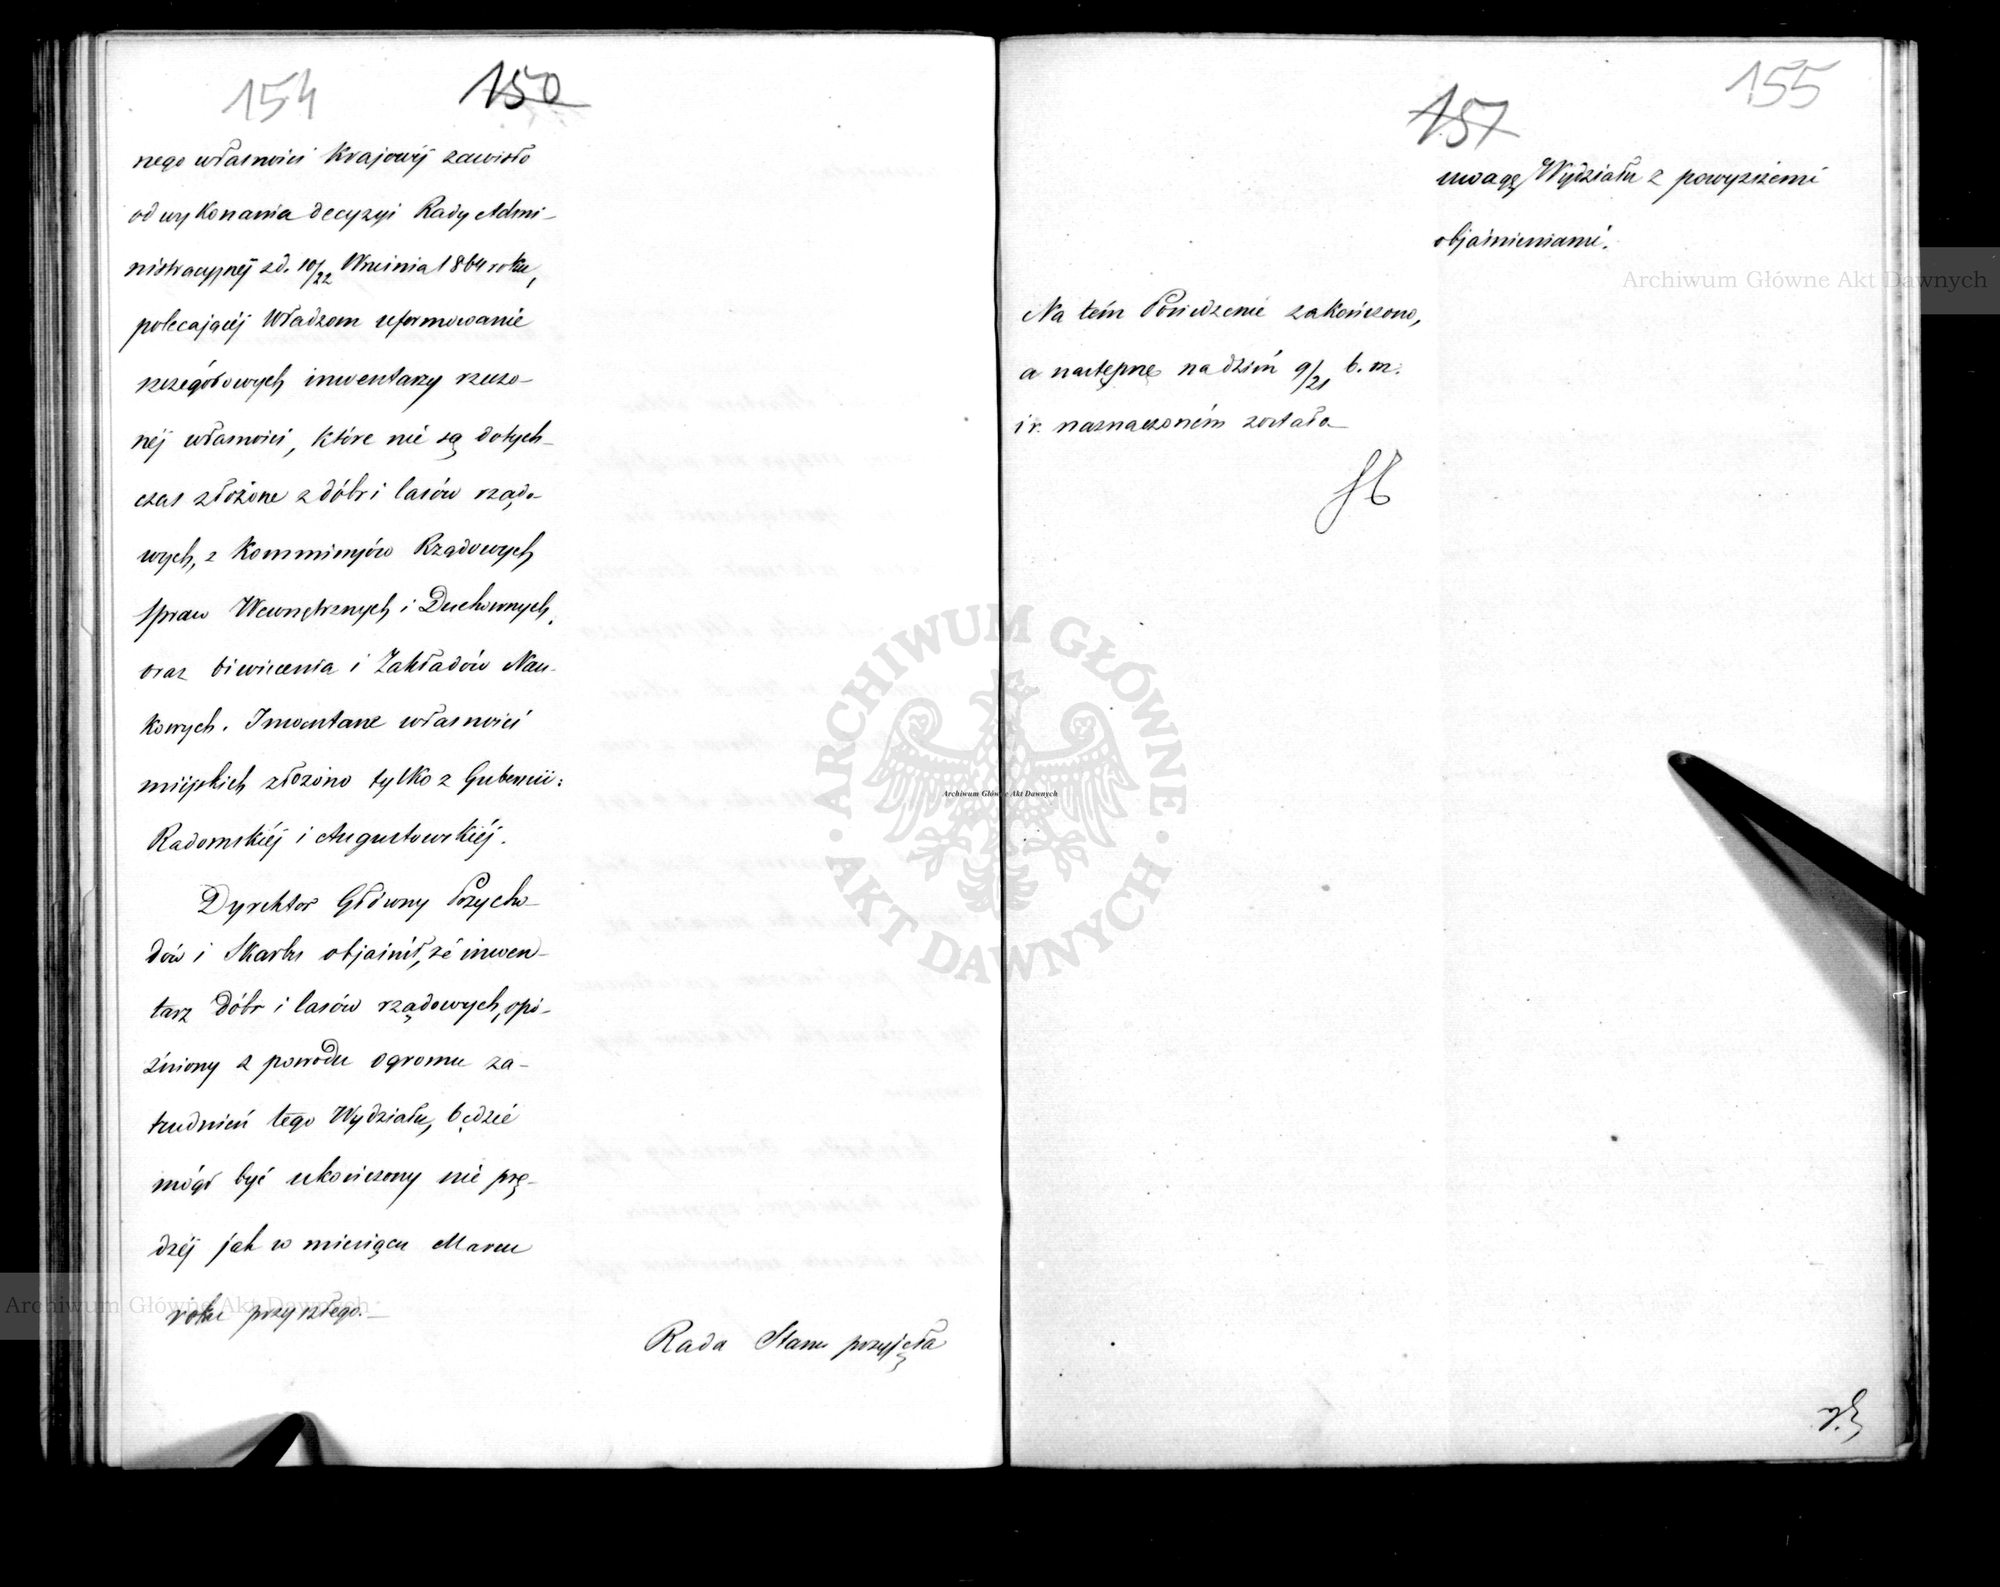 154 150
nego własności Krajowéj zawisło
od wykonania decyzyi Rady Admi-
nistracyjnéj z d. 10/22 Września 1864 roku,
polecającéj Władzom uformowanie
szczegółowych inwentarzy rzeczo-
néj własności, które nie są dotych-
czas złożone z dóbr i lasów rządo-
wych, z Kommissyów Rządowych
Spraw Wewnętrznych i Duchownych,
oraz Oświecenia i Zakładów Nau-
kowych. Inwentarze własności
miejskich złożono tylko z Gubernii:
Radomskiéj i Augustowskiéj.
Dyrektor Główny Przycho-
dów i Skarbu objaśnił, że inwen-
tarz dóbr i lasów rządowych, opó-
źniony z powodu ogromu za-
trudnień tego Wydziału, będzie
mógł być ukończony nie prę-
dzéj jak w miesiącu Marcu
roku przyszłego.—
Rada Stanu przyjęła
155
157
uwagę Wydziału z powyższemi
objaśnieniami.
Na tém Posiedzenie zakończono,
a następne na dzień 9/21 b. m.
i r. naznaczoném zostało—
Archiwum Główne Akt Dawnych
ARCHIWUM GŁÓWNE
AKT DAWNYCH
Archiwum Główne Akt Dawnych
Archiwum Główne Akt Dawnych